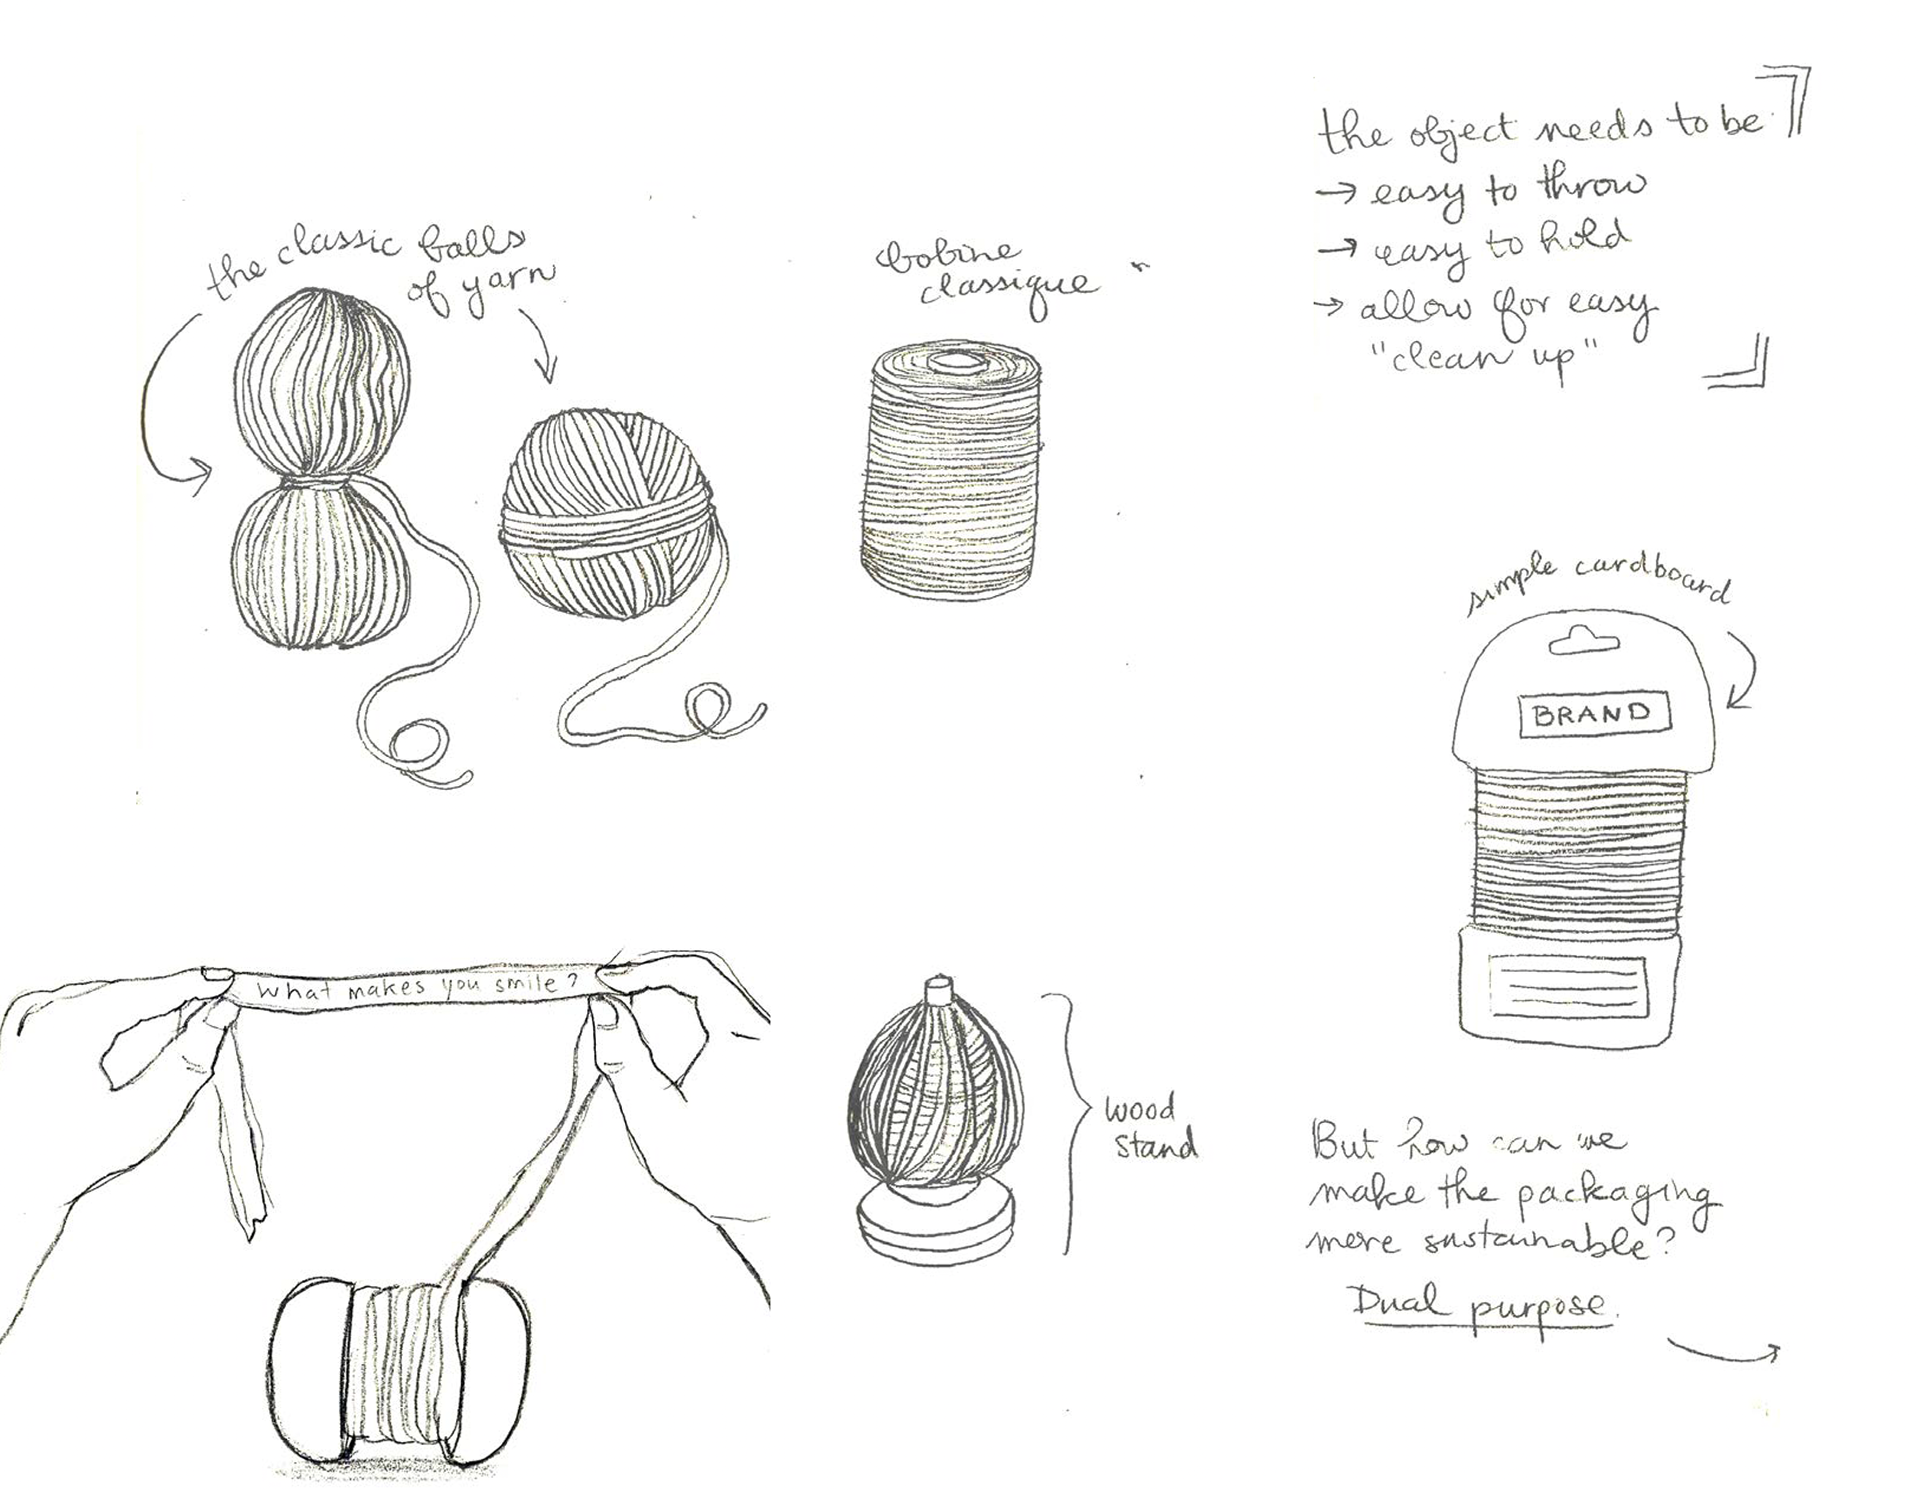 the classic balls
of yarn
bobine
classique
the object needs to be
→ easy to throw
→ easy to hold
→ allow for easy
"clean up"
simple cardboard
BRAND
What makes you smile?
wood
stand
But how can we
make the packaging
more sustainable?
Dual purpose.